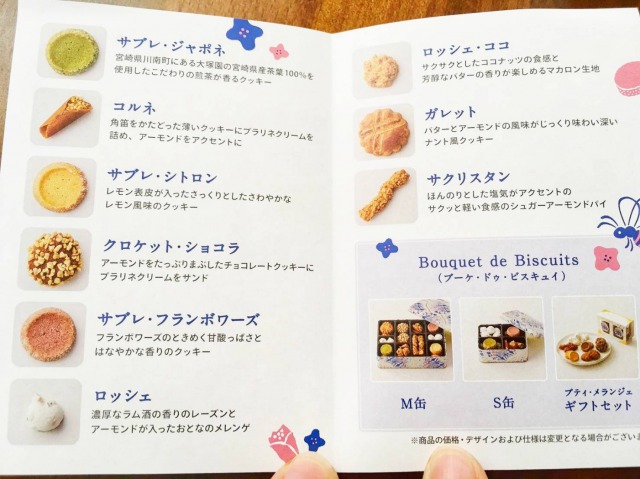 サブレ・ジャポネ
宮崎県川南町にある大塚園の宮崎県産茶葉100%を
使用したこだわりの煎茶が香るクッキー
コルネ
角笛をかたどった薄いクッキーにプラリネクリームを
詰め、アーモンドをアクセントに
サブレ・シトロン
レモン表皮が入ったさっくりとしたさわやかな
レモン風味のクッキー
クロケット・ショコラ
アーモンドをたっぷりまぶしたチョコレートクッキーに
プラリネクリームをサンド
サブレ・フランボワーズ
フランボワーズのときめく甘酸っぱさと
はなやかな香りのクッキー
ロッシェ
濃厚なラム酒の香りのレーズンと
アーモンドが入ったおとなのメレンゲ
ロッシェ・ココ
サクサクとしたココナッツの食感と
芳醇なバターの香りが楽しめるマカロン生地
ガレット
バターとアーモンドの風味がじっくり味わい深い
ナント風クッキー
サクリスタン
ほんのりとした塩気がアクセントの
サクッと軽い食感のシュガーアーモンドパイ
Bouquet de Biscuits
(ブーケ・ドゥ・ビスキュイ)
M缶
S缶
プティ・メランジェ
ギフトセット
※商品の価格・デザインおよび仕様は変更となる場合がござい